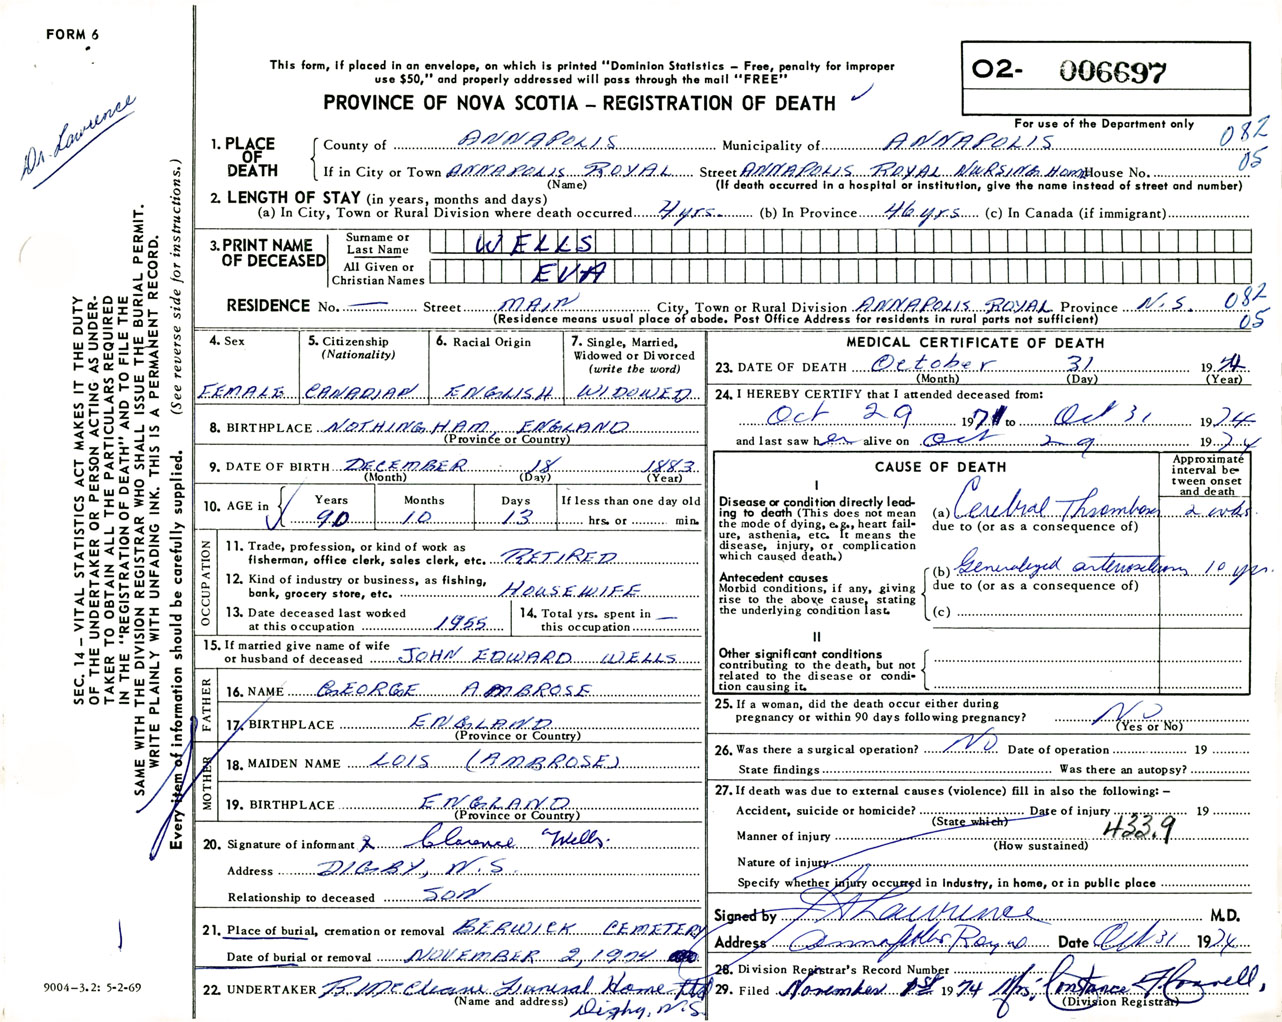 FORM 6
This form, if placed in an envelope, on which is printed "Dominion Statistics – Free, penalty for improper
use $50," and properly addressed will pass through the mail "FREE"
PROVINCE OF NOVA SCOTIA – REGISTRATION OF DEATH ✓
O2- 006697
For use of the Department only
082
05
Dr. Lawrence
SEC. 14 – VITAL STATISTICS ACT MAKES IT THE DUTY
OF THE UNDERTAKER OR PERSON ACTING AS UNDER-
TAKER TO OBTAIN ALL THE PARTICULARS REQUIRED
IN THE "REGISTRATION OF DEATH" AND TO FILE THE
SAME WITH THE DIVISION REGISTRAR WHO SHALL ISSUE THE BURIAL PERMIT.
WRITE PLAINLY WITH UNFADING INK. THIS IS A PERMANENT RECORD.
Every item of information should be carefully supplied. (See reverse side for instructions.)
1. PLACE OF DEATH
County of ANNAPOLIS Municipality of ANNAPOLIS
If in City or Town ANNAPOLIS ROYAL Street ANNAPOLIS ROYAL NURSING HOME House No.
(Name) (If death occurred in a hospital or institution, give the name instead of street and number)
2. LENGTH OF STAY (in years, months and days)
(a) In City, Town or Rural Division where death occurred 4 yrs. (b) In Province 46 yrs (c) In Canada (if immigrant)
3. PRINT NAME OF DECEASED
Surname or Last Name WELLS
All Given or Christian Names EVA
RESIDENCE No. — Street MAIN City, Town or Rural Division ANNAPOLIS ROYAL Province N.S. 082
(Residence means usual place of abode. Post Office Address for residents in rural parts not sufficient) 05
4. Sex
FEMALE
5. Citizenship
(Nationality)
CANADIAN
6. Racial Origin
ENGLISH
7. Single, Married,
Widowed or Divorced
(write the word)
WIDOWED
8. BIRTHPLACE NOTHINGHAM, ENGLAND
(Province or Country)
9. DATE OF BIRTH DECEMBER 18 1883
(Month) (Day) (Year)
10. AGE in Years Months Days If less than one day old
90 10 13 hrs. or min.
OCCUPATION
11. Trade, profession, or kind of work as
fisherman, office clerk, sales clerk, etc. RETIRED
12. Kind of industry or business, as fishing,
bank, grocery store, etc. HOUSEWIFE
13. Date deceased last worked
at this occupation 1955
14. Total yrs. spent in
this occupation —
15. If married give name of wife
or husband of deceased JOHN EDWARD WELLS
FATHER
16. NAME GEORGE AMBROSE
17. BIRTHPLACE ENGLAND
(Province or Country)
MOTHER
18. MAIDEN NAME LOIS (AMBROSE)
19. BIRTHPLACE ENGLAND
(Province or Country)
20. Signature of informant X Clarence Wells.
Address DIGBY, N.S.
Relationship to deceased SON
21. Place of burial, cremation or removal BERWICK CEMETERY
Date of burial or removal NOVEMBER 2, 1974
22. UNDERTAKER Funeral Home Ltd
(Name and address) Digby, N.S.
MEDICAL CERTIFICATE OF DEATH
23. DATE OF DEATH October 31 1974
(Month) (Day) (Year)
24. I HEREBY CERTIFY that I attended deceased from:
Oct 29 1971 to Oct 31 1974
and last saw her alive on Oct 29 1974
CAUSE OF DEATH
Approximate
interval be-
tween onset
and death
I
Disease or condition directly lead-
ing to death (This does not mean
the mode of dying, e.g., heart fail-
ure, asthenia, etc. It means the
disease, injury, or complication
which caused death.)
(a) Cerebral Thrombosis 2 wks.
due to (or as a consequence of)
Antecedent causes
Morbid conditions, if any, giving
rise to the above cause, stating
the underlying condition last.
(b) Generalized arteriosclerosis 10 yrs.
due to (or as a consequence of)
(c)
II
Other significant conditions
contributing to the death, but not
related to the disease or condi-
tion causing it.
25. If a woman, did the death occur either during
pregnancy or within 90 days following pregnancy? NO
(Yes or No)
26. Was there a surgical operation? NO Date of operation 19
State findings Was there an autopsy?
27. If death was due to external causes (violence) fill in also the following: –
Accident, suicide or homicide? Date of injury 19
(State which) 433.9
Manner of injury
(How sustained)
Nature of injury
Specify whether injury occurred in Industry, in home, or in public place
Signed by Lawrence M.D.
Address Annapolis Royal Date Oct 31 1974
28. Division Registrar's Record Number
29. Filed November 1st 1974 Mrs. Constance
(Division Registrar)
9004–3.2: 5-2-69